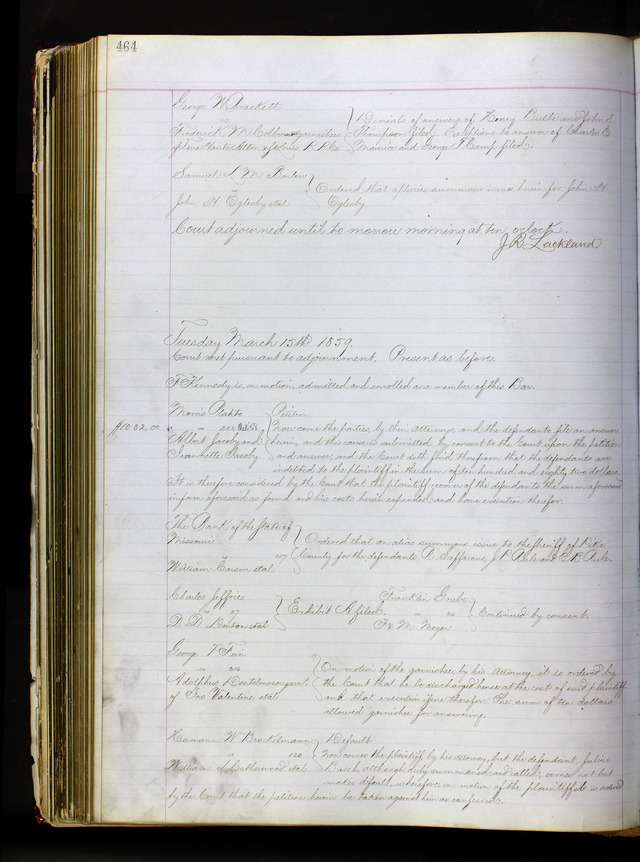 464
George W Brackett
vs
Frederick M Colburn garnishee
of Terre Haute Alton & St Louis R.R.Co
Denials of answers of Henry Butler and John S
Thompson filed. Exceptions to answer of Charles C
and George T filed.
Samuel L M Barlow
vs
John H Oglesby et al
Ordered that a pluries summons issue herein for John H
Oglesby.
Court adjourned until to morrow morning at ten o'clock.
J. R. Lackland
Tuesday March 15th 1859.
Court met pursuant to adjournment. Present as before.
T Kennedy is on motion admitted and enrolled as a member of this Bar.
$1082.00
Morris
vs
Albert Jacoby and
Jeannette Jacoby
Petition
Now come the parties, by their attorneys, and the defendants file an answer
herein, and this cause is submitted by consent to the Court upon the petition
and answer, and the Court doth find therefrom that the defendants are
indebted to the plaintiff in the sum of ten hundred and eighty two dollars
It is therefore considered by the Court that the plaintiff recover of the defendants the sum aforesaid
in form aforesaid as found and his costs herein expended and have execution therefor.
The Bank of the State of
Missouri
vs
William Carson et al
Ordered that an alias summons issue to the sheriff of Pike
County for the defendants R. , J P and
Charles Jeffries
vs 27
D. D. et al
Exhibit A filed.
Franklin
vs
Fr M Meyer
Continued by consent.
George
vs
Adolphus garnh.
of Jno Valentine et al
On motion of the garnishee, by his Attorney, it is ordered by
the Court that he be discharged hence at the cost of said plaintiff
and that execution issue therefor. The sum of ten dollars
allowed garnishee for answering.
Hermann W Brockelmann
vs 120
William L Catherwood et al
Default.
Now comes the plaintiff by his attorney, but the defendant, Julius
although duly summoned and called, comes not but
makes default, wherefore on motion of the plaintiff it is ordered
by the Court that the petition herein be taken against him as confessed.